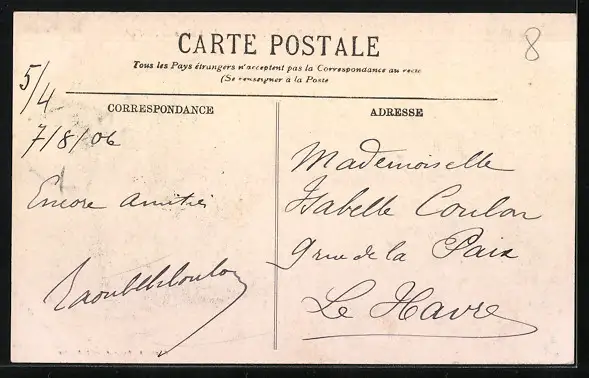 CARTE POSTALE
Tous les Pays étrangers n'acceptent pas la Correspondance au recto
(Se renseigner à la Poste
8
5/4
CORRESPONDANCE
7/8/06
Encore amitiés
ADRESSE
Mademoiselle
Isabelle Coulon
9 rue de la Paix
Le Havre